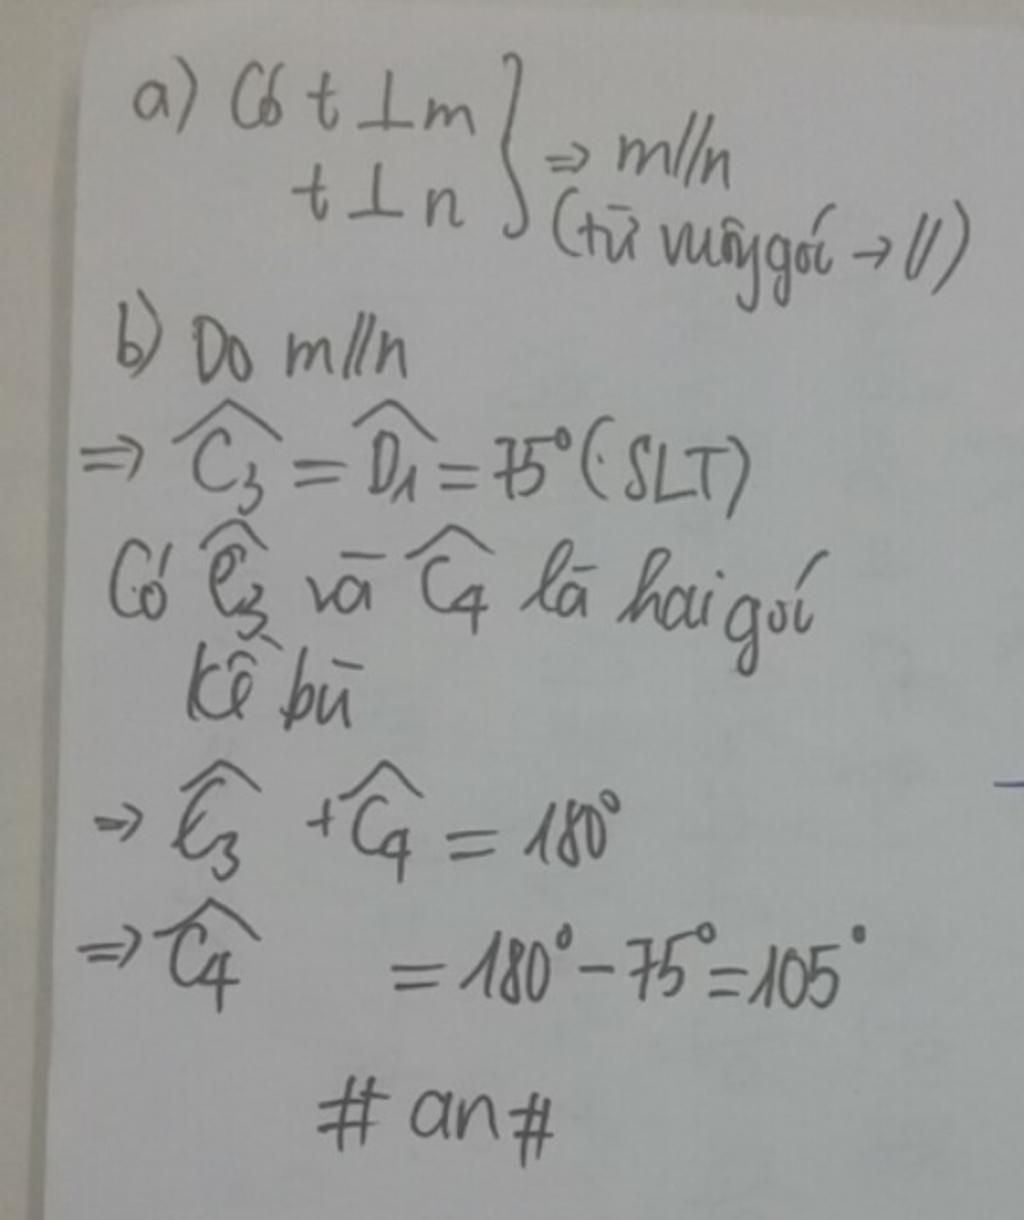 a) Có t ⊥ m } ⇒ m//n
t ⊥ n (từ vuông góc → //)
b) Do m//n
⇒ Ĉ₃ = D̂₁ = 75° (SLT)
Có Ĉ₃ và Ĉ₄ là hai góc
kề bù
⇒ Ĉ₃ + Ĉ₄ = 180°
⇒ Ĉ₄ = 180° - 75° = 105°
# an #